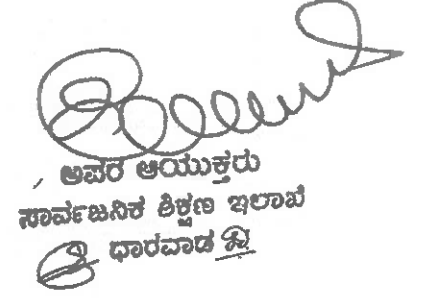 ಅಪರ ಆಯುಕ್ತರು
ಸಾರ್ವಜನಿಕ ಶಿಕ್ಷಣ ಇಲಾಖೆ
ಧಾರವಾಡ